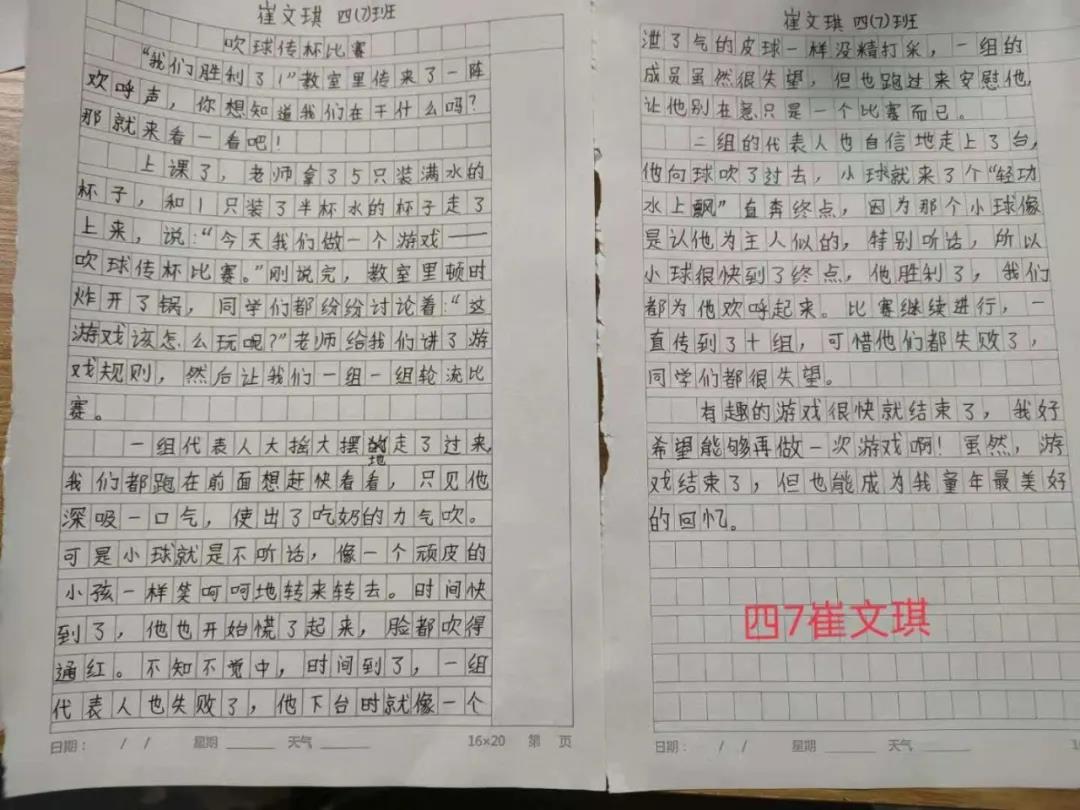 崔文琪 四(7)班
吹球传杯比赛
“我们胜利了!”教室里传来了一阵
欢呼声，你想知道我们在干什么吗?
那就来看一看吧!
上课了，老师拿了5只装满水的
杯子，和1只装了半杯水的杯子走了
上来，说:“今天我们做一个游戏——
吹球传杯比赛。”刚说完，教室里顿时
炸开了锅，同学们都纷纷讨论着:“这
游戏该怎么玩呢?”老师给我们讲了游
戏规则，然后让我们一组一组轮流比
赛。
一组代表人大摇大摆地走了过来，
我们都跑在前面想赶快看看，只见他
深吸一口气，使出了吃奶的力气吹。
可是小球就是不听话，像一个顽皮的
小孩一样笑呵呵地转来转去。时间快
到了，他也开始慌了起来，脸都吹得
通红。不知不觉中，时间到了，一组
代表人也失败了，他下台时就像一个
日期: / / 星期 天气 16×20 第 页
崔文琪 四(7)班
泄了气的皮球一样没精打采，一组的
成员虽然很失望，但也跑过来安慰他，
让他别在急只是一个比赛而已。
二组的代表人也自信地走上了台，
他向球吹了过去，小球就来了个“轻功
水上飘”直奔终点，因为那个小球像
是认他为主人似的，特别听话，所以
小球很快到了终点，他胜利了，我们
都为他欢呼起来。比赛继续进行，一
直传到了十组，可惜他们都失败了，
同学们都很失望。
有趣的游戏很快就结束了，我好
希望能够再做一次游戏啊!虽然，游
戏结束了，但也能成为我童年最美好
的回忆。
四7崔文琪
日期: / / 星期 天气